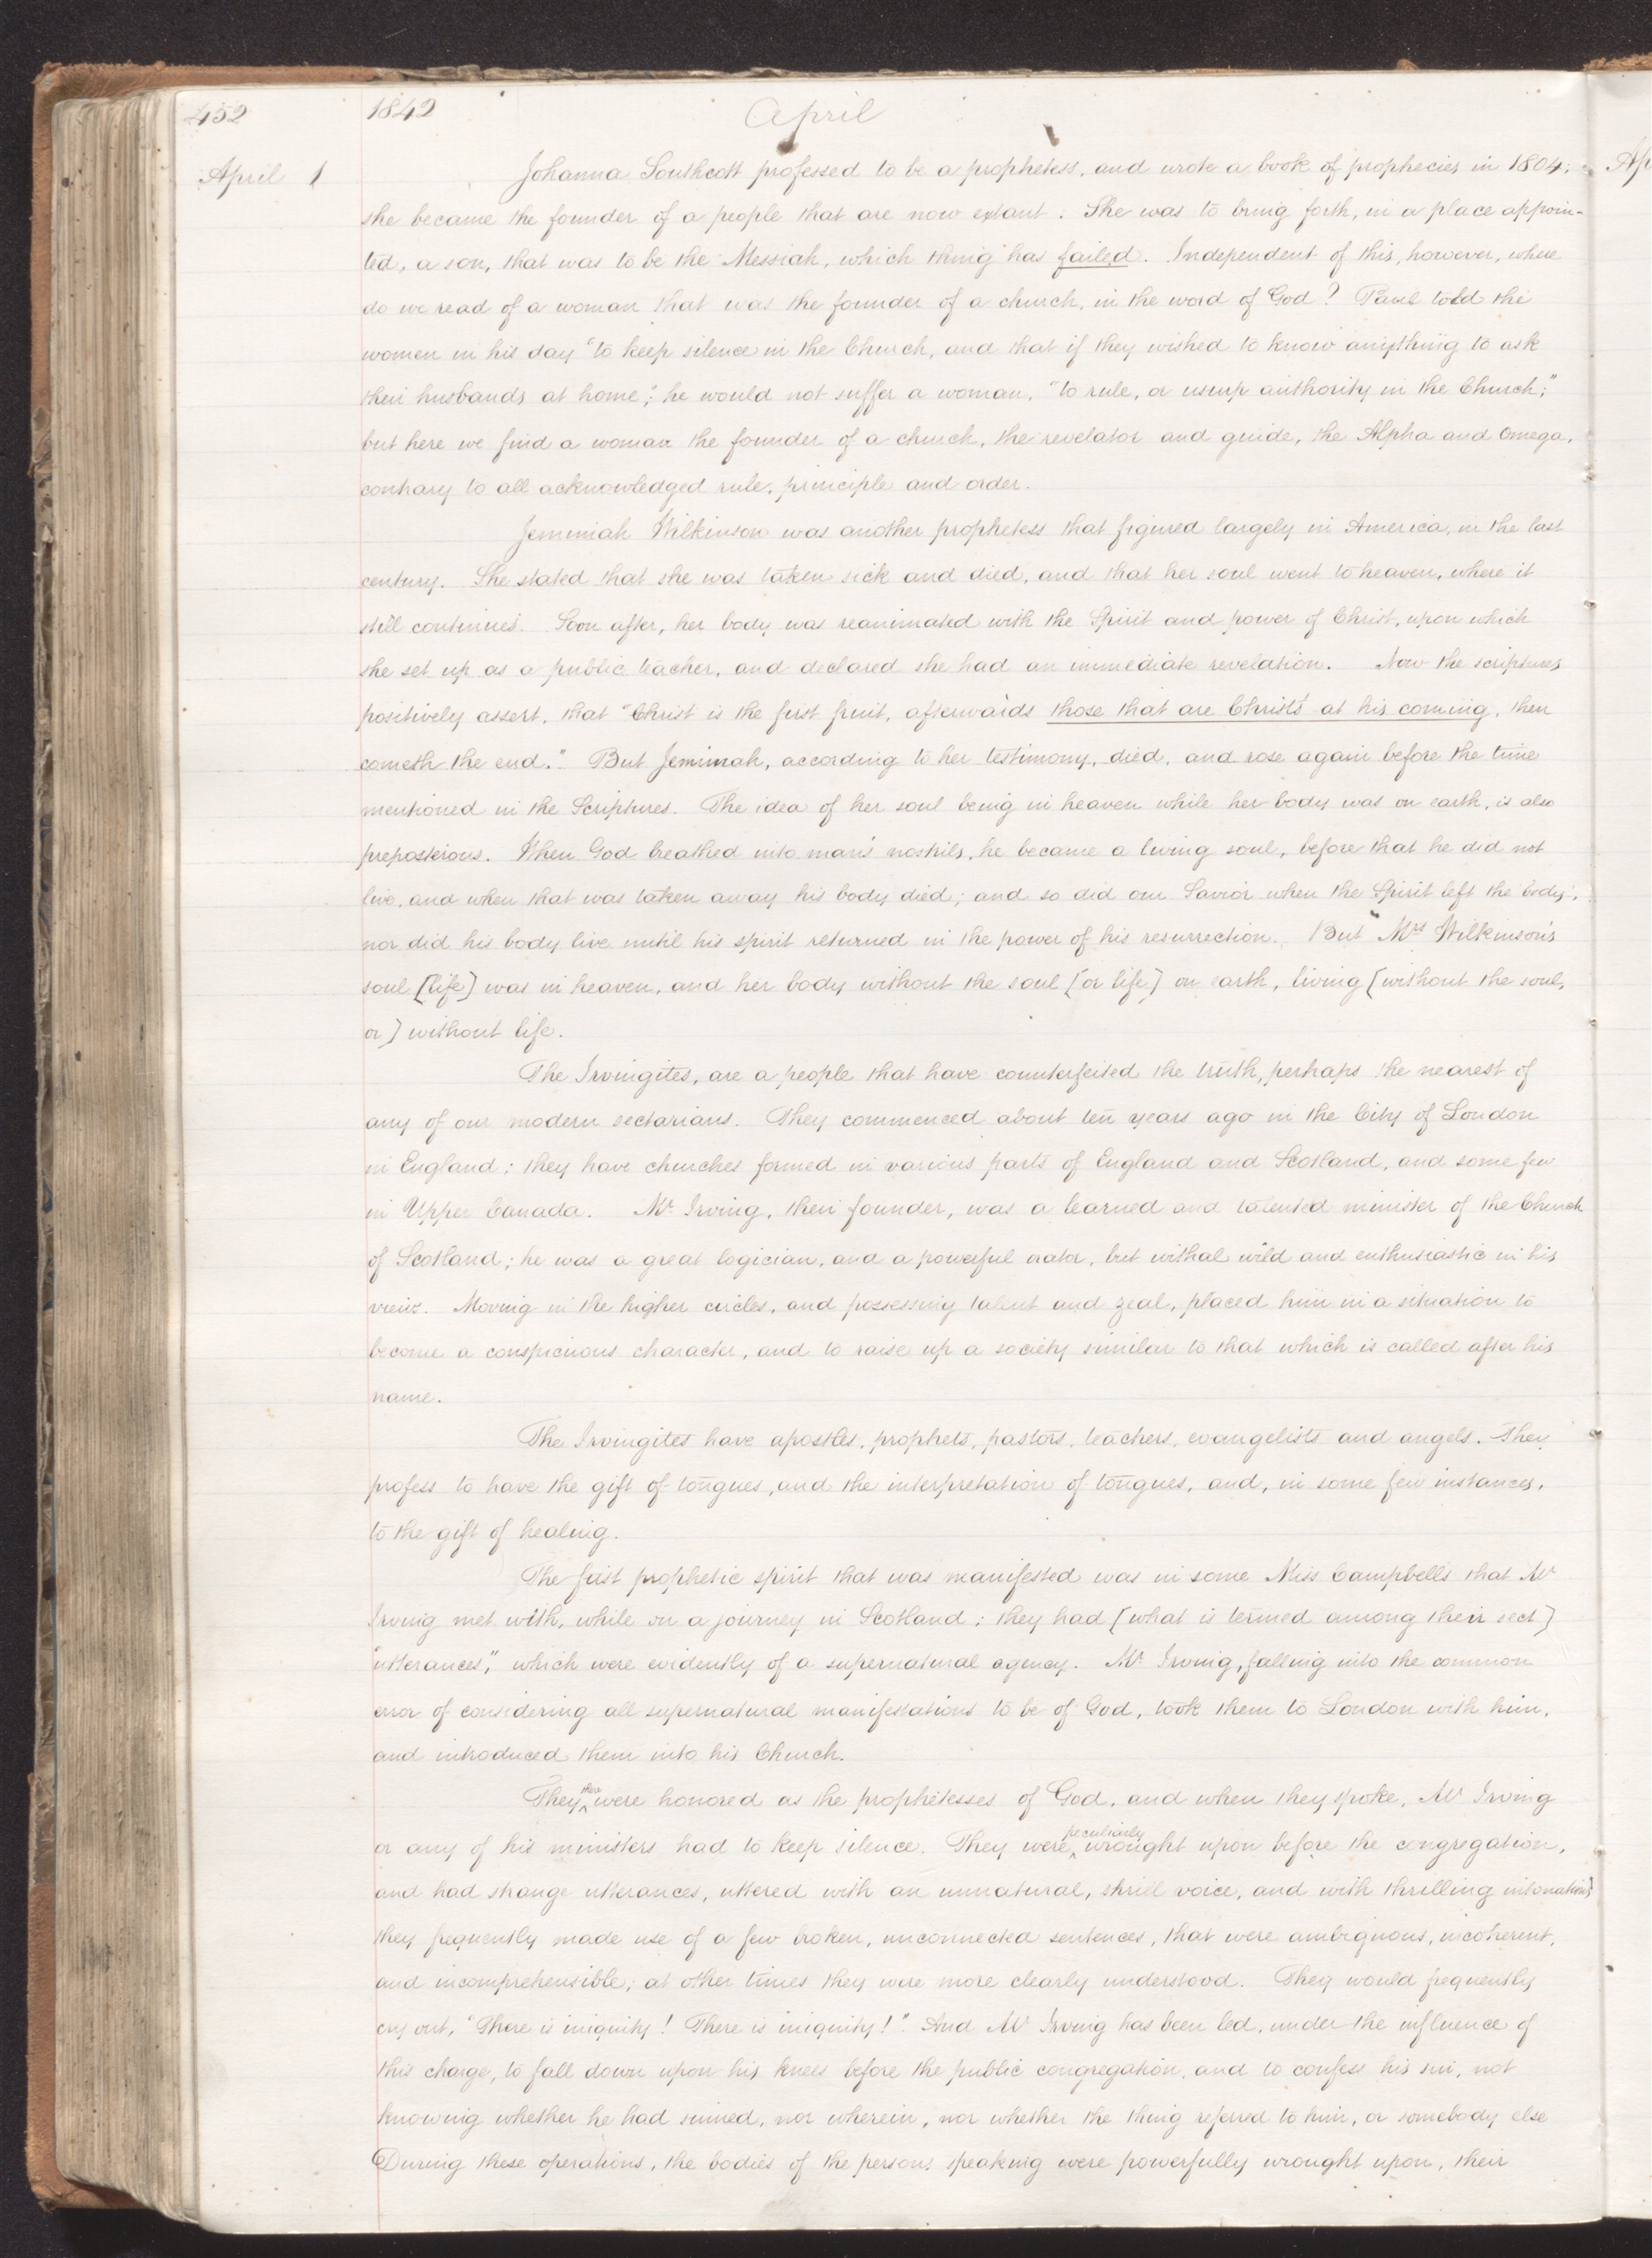 452 1842 April
April 1 Johanna Southcott professed to be a prophetess, and wrote a book of prophecies in 1804;
she became the founder of a people that are now extant. She was to bring forth, in a place appoin-
ted, a son, that was to be the Messiah, which thing has failed. Independent of this, however, where
do we read of a woman that was the founder of a church, in the word of God? Paul told the
women in his day "to keep silence in the Church, and that if they wished to know anything to ask
their husbands at home"; he would not suffer a woman, "to rule, or usurp authority in the Church;"
but here we find a woman the founder of a church, the revelator and guide, the Alpha and Omega,
contrary to all acknowledged rule, principle and order.
Jemimah Wilkinson was another prophetess that figured largely in America, in the last
century. She stated that she was taken sick and died, and that her soul went to heaven, where it
still continues. Soon after, her body was reanimated with the Spirit and power of Christ, upon which
she set up as a public teacher, and declared she had an immediate revelation. Now the scriptures
positively assert, that "Christ is the first fruit, afterwards those that are Christ's at his coming, then
cometh the end." But Jemimah, according to her testimony, died, and rose again before the time
mentioned in the Scriptures. The idea of her soul being in heaven while her body was on earth, is also
preposterous. When God breathed into man's nostrils, he became a living soul, before that he did not
live, and when that was taken away his body died; and so did our Savior when the Spirit left the body;
nor did his body live until his spirit returned in the power of his resurrection. But Mrs Wilkinson's
soul [life] was in heaven, and her body without the soul [or life] on earth, living [without the soul,
or] without life.
The Irvingites, are a people that have counterfeited the truth, perhaps the nearest of
any of our modern sectarians. They commenced about ten years ago in the City of London
in England; they have churches formed in various parts of England and Scotland, and some few
in Upper Canada. Mr Irving, their founder, was a learned and talented minister of the Church
of Scotland; he was a great logician, and a powerful orator, but withal wild and enthusiastic in his
views. Moving in the higher circles, and possessing talent and zeal, placed him in a situation to
become a conspicuous character, and to raise up a society similar to that which is called after his
name.
The Irvingites have apostles, prophets, pastors, teachers, evangelists and angels. They
profess to have the gift of tongues, and the interpretation of tongues, and, in some few instances,
to the gift of healing.
The first prophetic spirit that was manifested was in some Miss Campbells that Mr
Irving met with, while on a journey in Scotland; they had [what is termed among their sect]
"utterances," which were evidently of a supernatural agency. Mr Irving, falling into the common
error of considering all supernatural manifestations to be of God, took them to London with him,
and introduced them into his Church.
They there were honored as the prophetesses of God, and when they spoke, Mr Irving
or any of his ministers had to keep silence. They were peculiarly wrought upon before the congregation,
and had strange utterances, uttered with an unnatural, shrill voice, and with thrilling intonations
they frequently made use of a few broken, unconnected sentences, that were ambiguous, incoherent,
and incomprehensible; at other times they were more clearly understood. They would frequently
cry out, "There is iniquity! There is iniquity!" And Mr Irving has been led, under the influence of
this charge, to fall down upon his knees before the public congregation, and to confess his sin, not
knowing whether he had sinned, nor wherein, nor whether the thing referred to him, or somebody else
During these operations, the bodies of the persons speaking were powerfully wrought upon, their